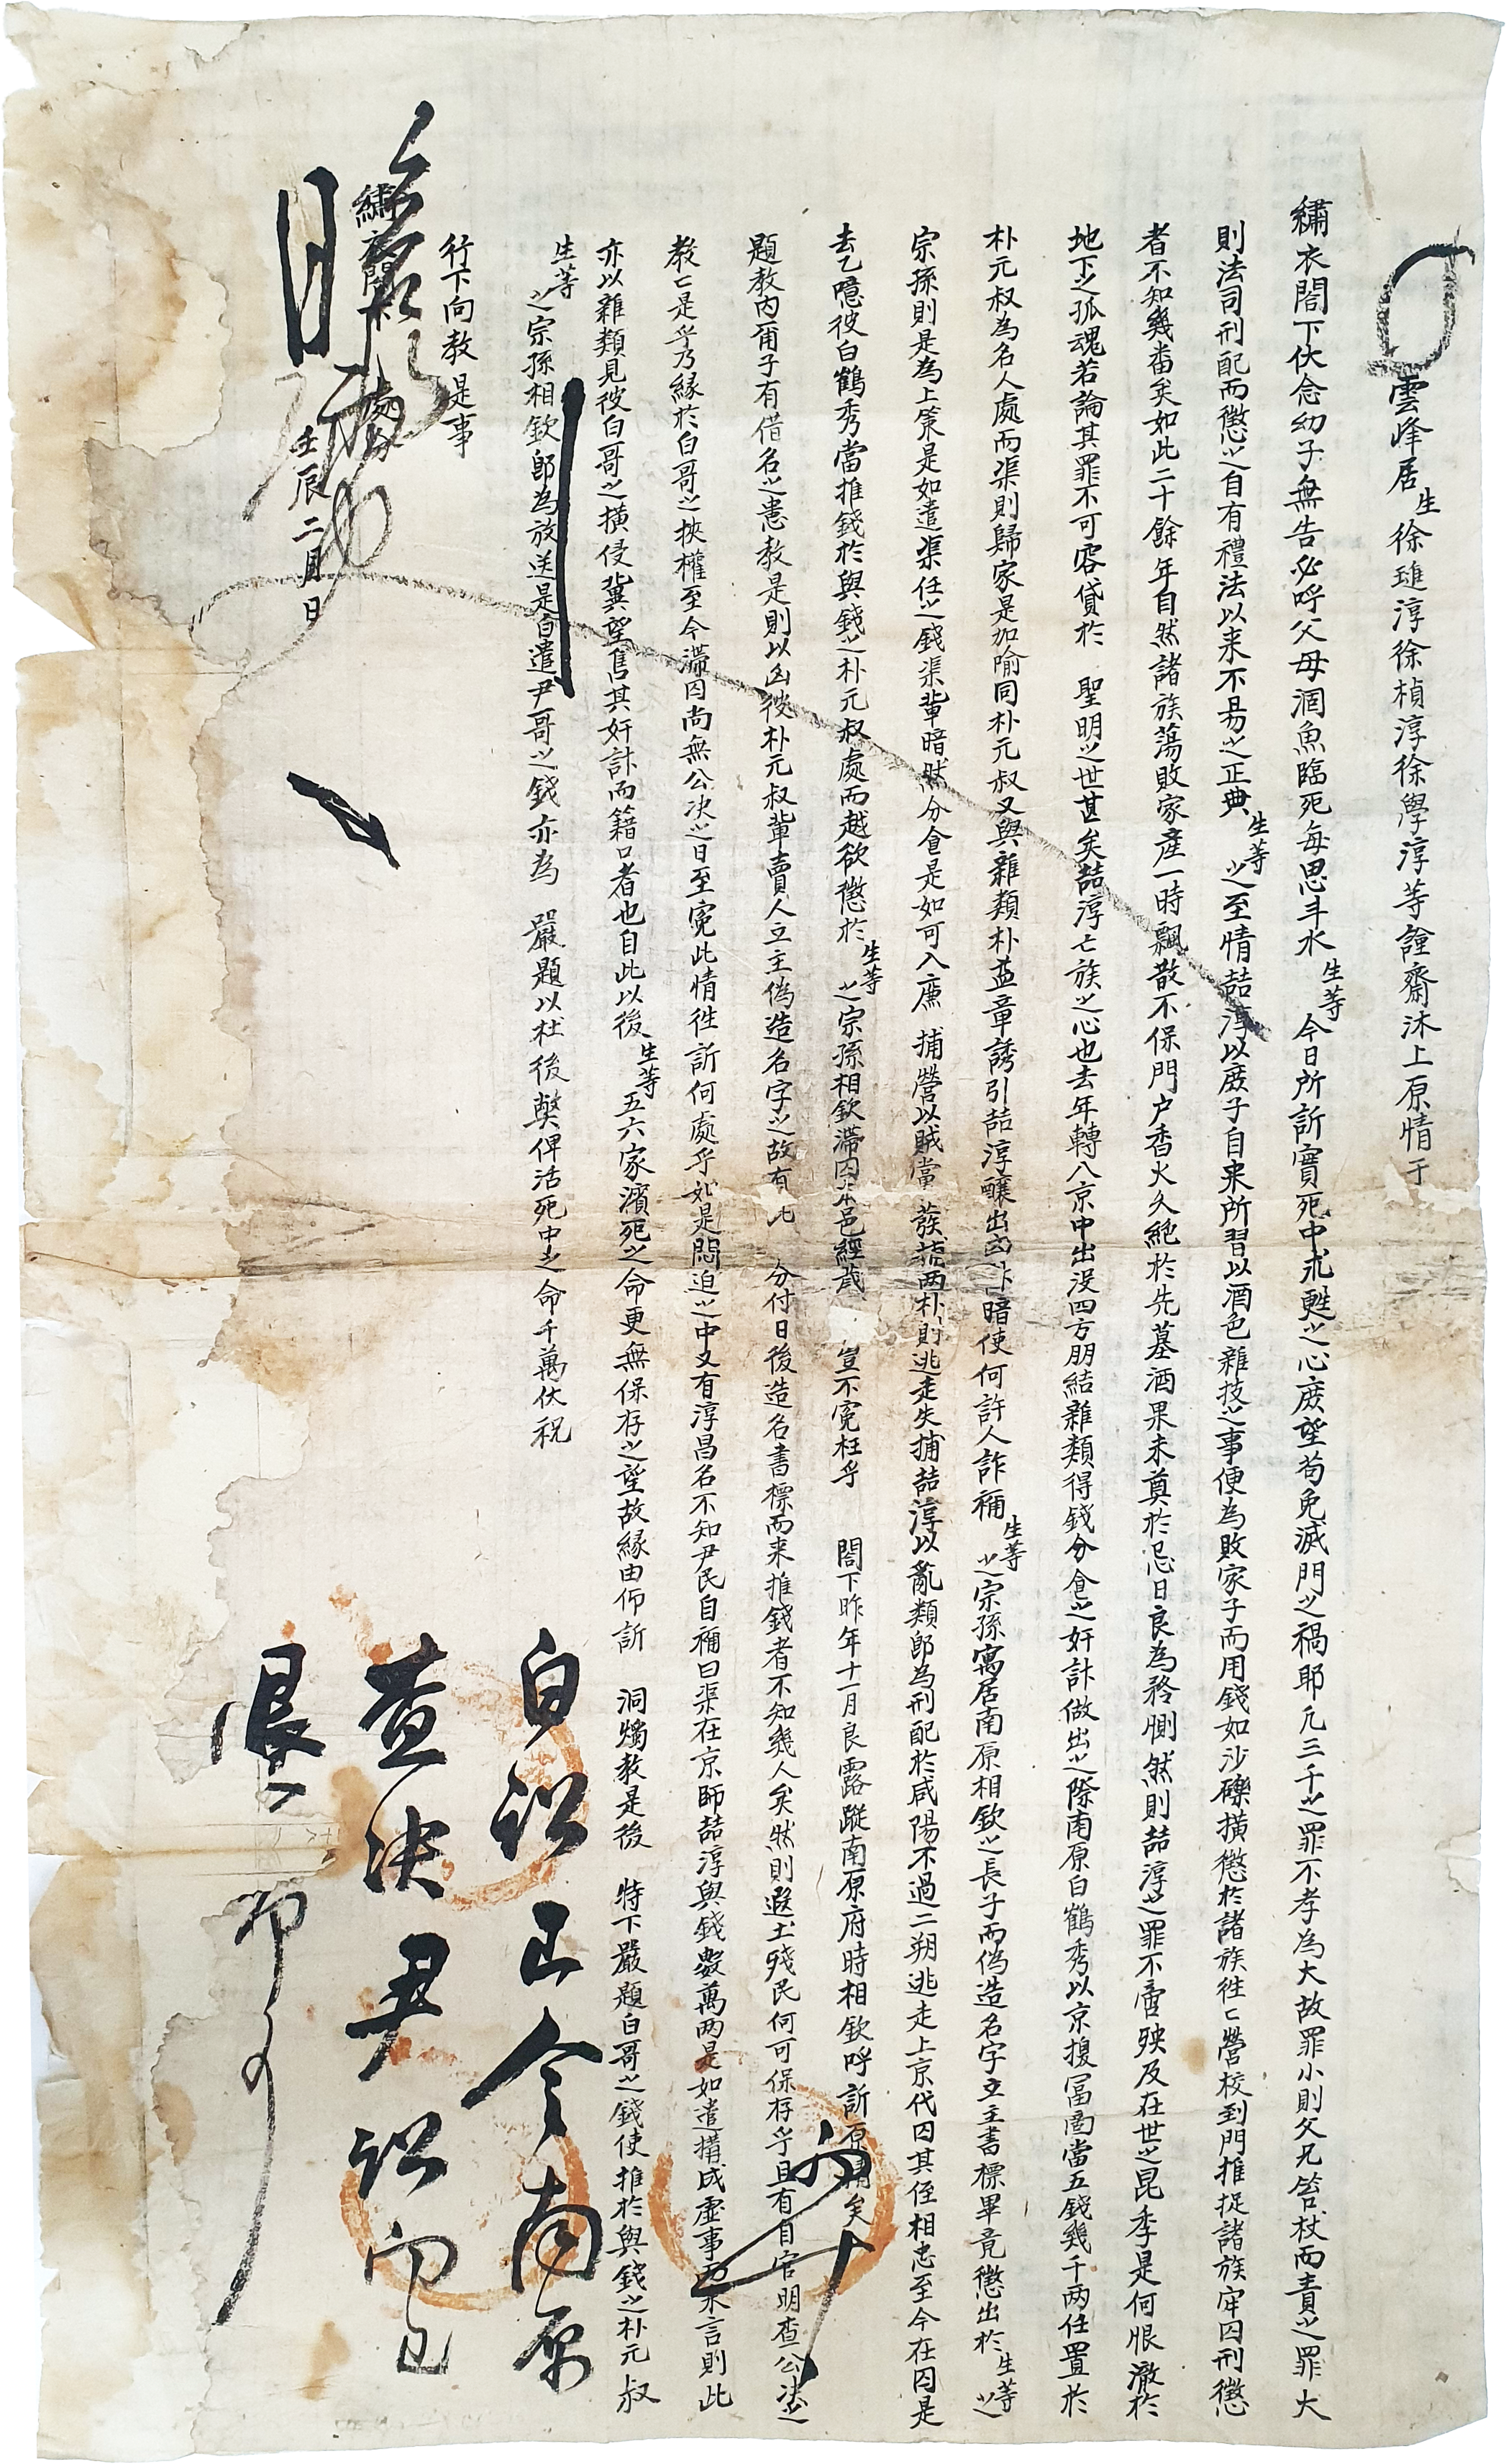 雲峰居生徐𤨒淳徐楨淳徐學淳等謹齋沐上原情于
繡衣閤下伏念幼子無告必呼父母涸魚臨死每思斗水生等今日所訴實死中求甦之心庶望苟免滅門之禍耶凡三千之罪不孝為大故罪小則父兄笞杖而責之罪大
則法司刑配而懲之自有禮法以来不易之正典生等之至情喆淳以庶子自来所習以酒色雜技之事便為敗家子而用錢如沙礫橫懲於諸族徃〻營校到門推捉諸族牢囚刑懲
者不知幾畨矣如此二十餘年自然諸族蕩敗家産一時飄散不保門户香火久絶於先墓酒果未奠於忌日良為矜惻然則喆淳之罪不啻殃及在世之昆季是何恨澈於
地下之孤魂若論其罪不可容貸於 聖明之世甚矣喆淳亡族之心也去年轉入京中出沒四方朋結雜類得錢分食之奸計做出之際南原白鶴秀以京揠冨啚當五錢幾千両任置於
朴元叔為名人處而渠則歸家是加喻同朴元叔又與雜類朴益章誘引喆淳釀出凶計暗使何許人詐稱生等之宗孫寓居南原相欽之長子而偽造名字立主書標畢竟懲出於生等之
宗孫則是為上策是如遣渠任之錢渠輩暗然分食是如可入廉 捕營以賊當 蔟蓏両朴則逃走失捕喆淳以亂類郎為刑配於咸陽不過二朔逃走上京代囚其侄相忠至今在囚是
去乙噫彼白鶴秀當推錢於與錢之朴元叔處而越欲懲於生等之宗孫相欽滯囚本邑經歲 豈不寃枉乎 閤下昨年十一月良露蹤南原府時相欽呼訴原情矣
題教内甭子有借名之恚教是則以凶彼朴元叔輩賣人立主偽造名字之故有此 分付日後造名書標而来推錢者不知幾人矣然則遐土殘民何可保存乎且有自官明査公决之
教〻是乎乃緣於白哥之挾權至今滯囚尚無公决之日至寃此情徃訴何處乎如是悶迫之中又有淳昌名不知尹民自稱曰渠在京師喆淳與錢數萬両是如遣搆成虛事而来言則此
亦以雜類見彼白哥之橫侵冀望售其奸計而籍口者也自此以後生等五六家濱死之命更無保存之望故緣由仰訴 洞燭教是後 特下嚴題白哥之錢使推於與錢之朴元叔
生等之宗孫相欽郎為放送是白遣尹哥之錢亦為 嚴題以杜後獘俾活死中之命千萬伏祝
行下向教是事
繡衣閤下 處分
壬辰二月 日
白訟已令南原
査决尹訟向